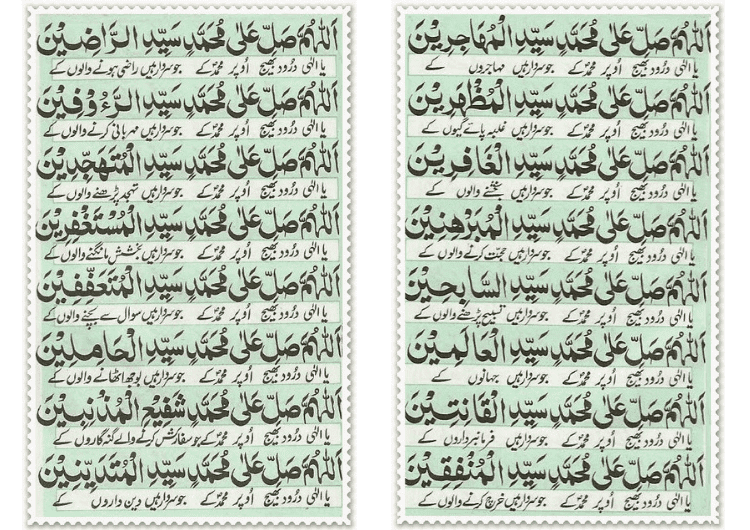 اَللّٰهُمَّ صَلِّ عَلٰى مُحَمَّدٍ سَيِّدِ الْمُهَاجِرِيْنَ
یا الٰہی درُود بھیج اُوپر محمدؐ کے جو سردار ہیں مہاجروں کے
اَللّٰهُمَّ صَلِّ عَلٰى مُحَمَّدٍ سَيِّدِ الْمُظْهَرِيْنَ
یا الٰہی درُود بھیج اُوپر محمدؐ کے جو سردار ہیں غلبہ پائے گیوں کے
اَللّٰهُمَّ صَلِّ عَلٰى مُحَمَّدٍ سَيِّدِ الْغَافِرِيْنَ
یا الٰہی درُود بھیج اُوپر محمدؐ کے جو سردار ہیں بخشنے والوں کے
اَللّٰهُمَّ صَلِّ عَلٰى مُحَمَّدٍ سَيِّدِ الْمُبَرْهِنِيْنَ
یا الٰہی درُود بھیج اُوپر محمدؐ کے جو سردار ہیں حجت کرنے والوں کے
اَللّٰهُمَّ صَلِّ عَلٰى مُحَمَّدٍ سَيِّدِ السَّابِحِيْنَ
یا الٰہی درُود بھیج اُوپر محمدؐ کے جو سردار ہیں تسبیح پڑھنے والوں کے
اَللّٰهُمَّ صَلِّ عَلٰى مُحَمَّدٍ سَيِّدِ الْعَالَمِيْنَ
یا الٰہی درُود بھیج اُوپر محمدؐ کے جو سردار ہیں جہانوں کے
اَللّٰهُمَّ صَلِّ عَلٰى مُحَمَّدٍ سَيِّدِ الْقَانِتِيْنَ
یا الٰہی درُود بھیج اُوپر محمدؐ کے جو سردار ہیں فرمانبرداروں کے
اَللّٰهُمَّ صَلِّ عَلٰى مُحَمَّدٍ سَيِّدِ الْمُنْفِقِيْنَ
یا الٰہی درُود بھیج اُوپر محمدؐ کے جو سردار ہیں خرچ کرنے والوں کے
اَللّٰهُمَّ صَلِّ عَلٰى مُحَمَّدٍ سَيِّدِ الرَّاضِيْنَ
یا الٰہی درُود بھیج اُوپر محمدؐ کے جو سردار ہیں راضی ہونے والوں کے
اَللّٰهُمَّ صَلِّ عَلٰى مُحَمَّدٍ سَيِّدِ الرَّءُوْفِيْنَ
یا الٰہی درُود بھیج اُوپر محمدؐ کے جو سردار ہیں مہربانی کرنے والوں کے
اَللّٰهُمَّ صَلِّ عَلٰى مُحَمَّدٍ سَيِّدِ الْمُتَهَجِّدِيْنَ
یا الٰہی درُود بھیج اُوپر محمدؐ کے جو سردار ہیں تہجد پڑھنے والوں کے
اَللّٰهُمَّ صَلِّ عَلٰى مُحَمَّدٍ سَيِّدِ الْمُسْتَغْفِرِيْنَ
یا الٰہی درُود بھیج اُوپر محمدؐ کے جو سردار ہیں بخشش مانگنے والوں کے
اَللّٰهُمَّ صَلِّ عَلٰى مُحَمَّدٍ سَيِّدِ الْمُتَعَفِّفِيْنَ
یا الٰہی درُود بھیج اُوپر محمدؐ کے جو سردار ہیں سوال سے بچنے والوں کے
اَللّٰهُمَّ صَلِّ عَلٰى مُحَمَّدٍ سَيِّدِ الْحَامِلِيْنَ
یا الٰہی درُود بھیج اُوپر محمدؐ کے جو سردار ہیں بوجھ اٹھانے والوں کے
اَللّٰهُمَّ صَلِّ عَلٰى مُحَمَّدٍ شَفِيْعِ الْمُذْنِبِيْنَ
یا الٰہی درُود بھیج اُوپر محمدؐ کے جو سفارش کرنے والے گنہگاروں کے
اَللّٰهُمَّ صَلِّ عَلٰى مُحَمَّدٍ سَيِّدِ الْمُتَدَيِّنِيْنَ
یا الٰہی درُود بھیج اُوپر محمدؐ کے جو سردار ہیں دین داروں کے